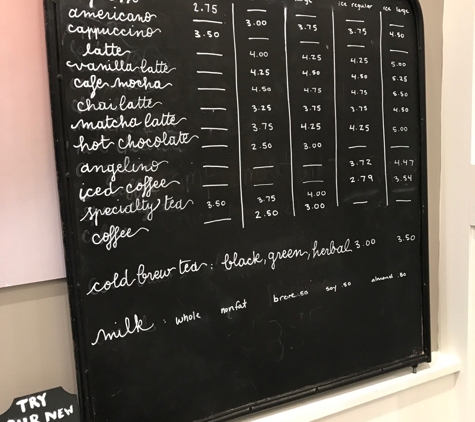 ice regular ice large
2.75 — — — —
americano — 3.00 3.75 3.75 4.50
cappuccino 3.50 — — — —
latte — 4.00 4.25 4.25 5.00
vanilla latte — 4.25 4.50 4.50 5.25
cafe mocha — 4.50 4.75 4.75 5.50
chai latte — 3.25 3.75 3.75 4.50
matcha latte — 3.75 4.25 4.25 5.00
hot chocolate — 2.50 3.00 — —
angelino — — — 3.72 4.47
iced coffee — — — 2.79 3.54
specialty tea 3.50 3.75 4.00 — —
coffee — 2.50 3.00
cold brew tea: black, green, herbal 3.00 3.50
milk: whole nonfat breve .50 soy .50 almond .80
TRY
OUR NEW